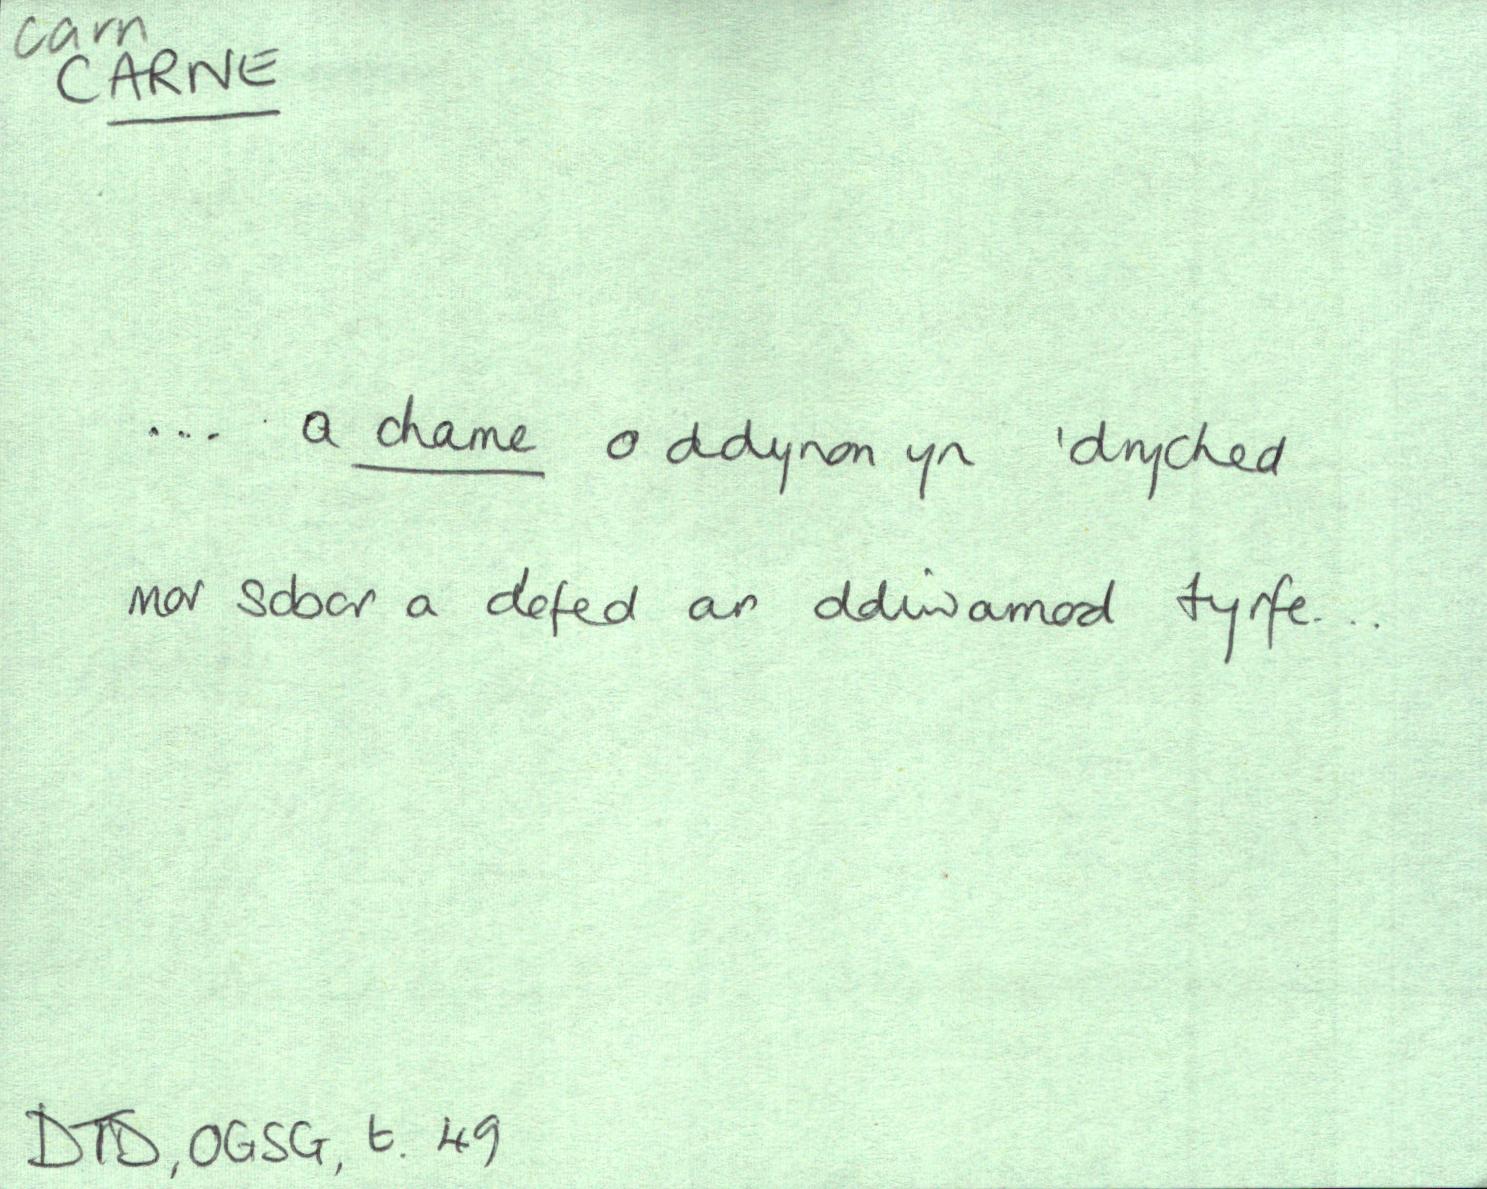 carn
CARNE
... a charne o ddynon yn 'drych​ed
mor sobor a defed ar ddiwarnod tyrfe...
DTD, OGSG, t. 49